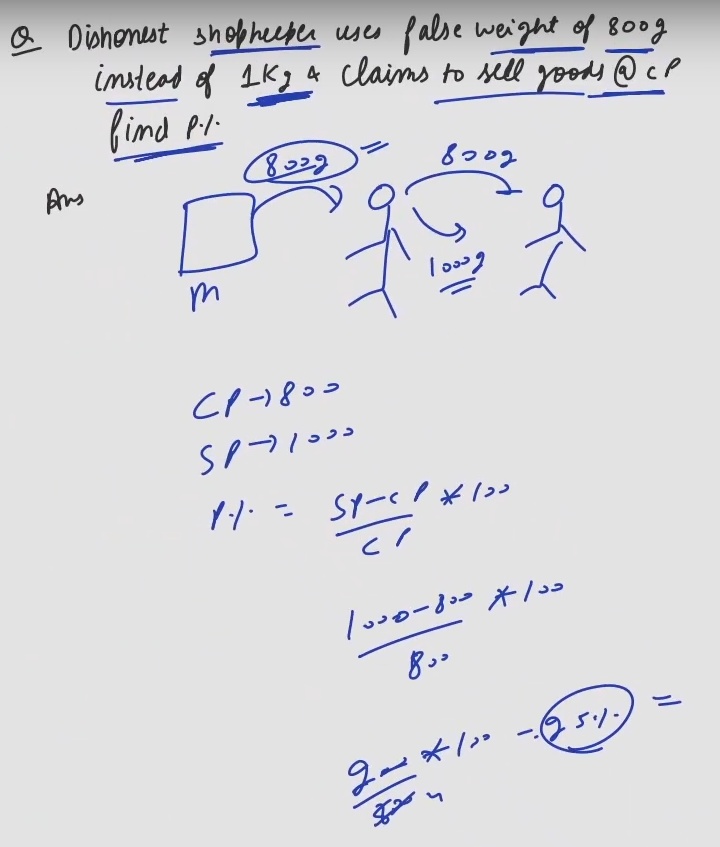 Q Dishonest shopkeeper uses false weight of 800g
instead of 1Kg & claims to sell goods @ CP
find P.%.
Ans
800g
800g
1000g
M
CP → 800
SP → 1000
P.%. = SP-CP * 100
CP
1000-800 * 100
800
200 * 100 = 25%. =
800 4